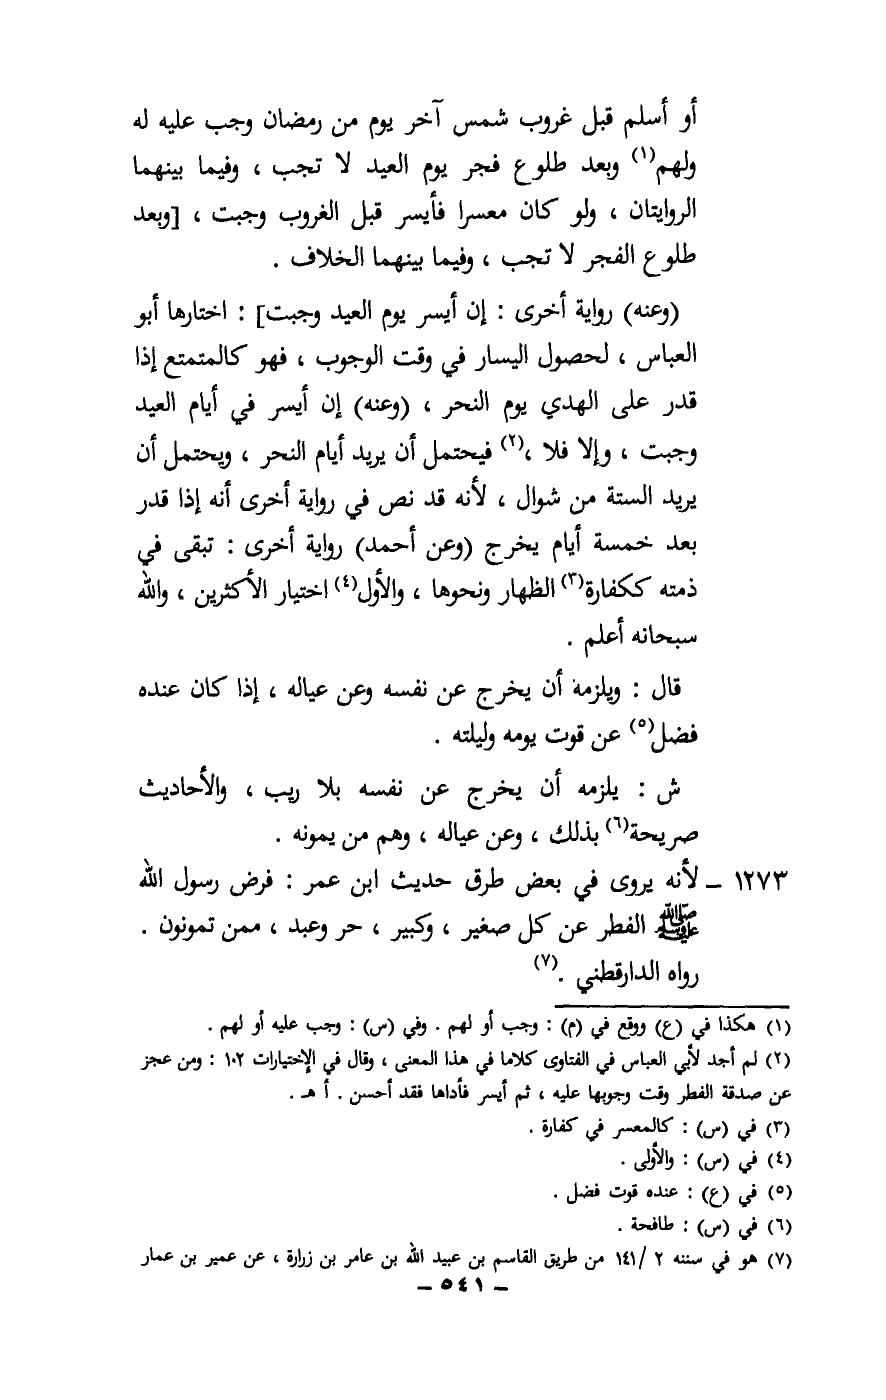 أو أسلم قبل غروب شمس آخر يوم من رمضان وجب عليه له
ولهم(١) وبعد طلوع فجر يوم العيد لا تجب ، وفيما بينهما
الروايتان ، ولو كان معسرا فأيسر قبل الغروب وجبت ، [وبعد
طلوع الفجر لا تجب ، وفيما بينهما الخلاف .
(وعنه) رواية أخرى : إن أيسر يوم العيد وجبت] : اختارها أبو
العباس ، لحصول اليسار في وقت الوجوب ، فهو كالمتمتع إذا
قدر على الهدي يوم النحر ، (وعنه) إن أيسر في أيام العيد
وجبت ، وإلا فلا ،(٢) فيحتمل أن يريد أيام النحر ، ويحتمل أن
يريد الستة من شوال ، لأنه قد نص في رواية أخرى أنه إذا قدر
بعد خمسة أيام يخرج (وعن أحمد) رواية أخرى : تبقى في
ذمته ككفارة(٣) الظهار ونحوها ، والأول(٤) اختيار الأكثرين ، والله
سبحانه أعلم .
قال : ويلزمه أن يخرج عن نفسه وعن عياله ، إذا كان عنده
فضل(٥) عن قوت يومه وليلته .
ش : يلزمه أن يخرج عن نفسه بلا ريب ، والأحاديث
صريحة(٦) بذلك ، وعن عياله ، وهم من يمونه .
١٢٧٣ – لأنه يروى في بعض طرق حديث ابن عمر : فرض رسول الله
ﷺ الفطر عن كل صغير ، وكبير ، حر وعبد ، ممن تمونون .
رواه الدارقطني .(٧)
(١) هكذا في (ع) ووقع في (م) : وجب أو لهم . وفي (س) : وجب عليه أو لهم .
(٢) لم أجد لأبي العباس في الفتاوى كلاما في هذا المعنى ، وقال في الإختيارات ١٠٢ : ومن عجز
عن صدقة الفطر وقت وجوبها عليه ، ثم أيسر فأداها فقد أحسن . أ هـ .
(٣) في (س) : كالمعسر في كفارة .
(٤) في (س) : والأولى .
(٥) في (ع) : عنده قوت فضل .
(٦) في (س) : طافحة .
(٧) هو في سننه ٢ /١٤١ من طريق القاسم بن عبيد الله بن عامر بن زرارة ، عن عمير بن عمار
– ٥٤١ –